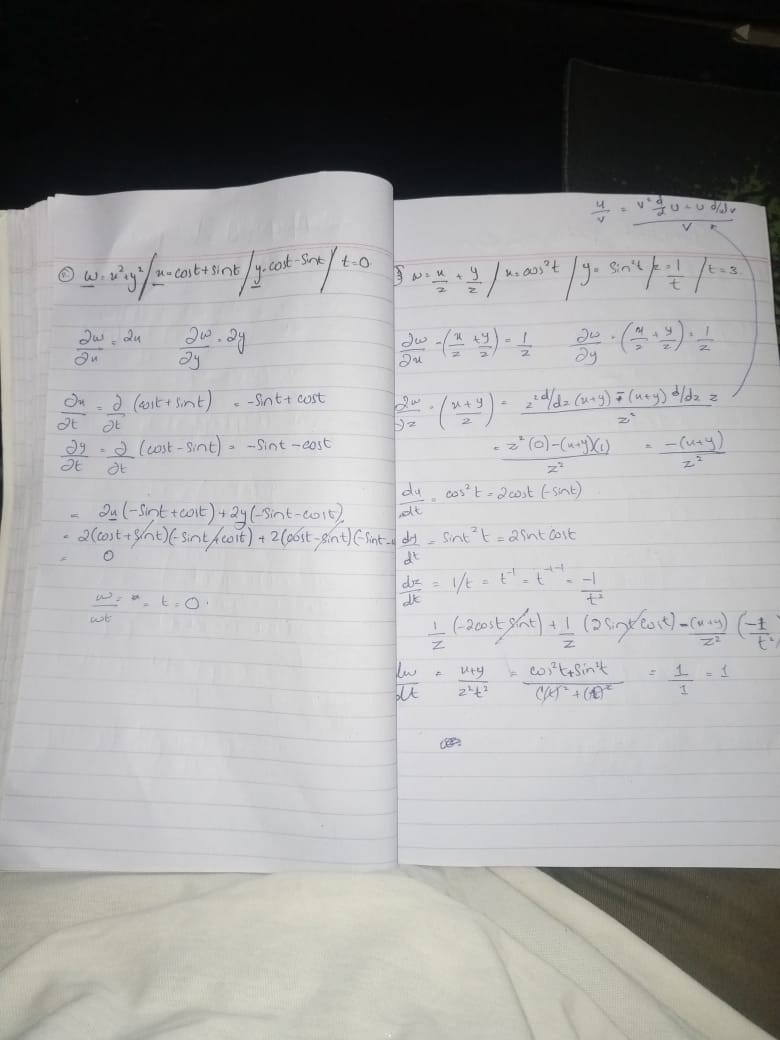 ② w = x²+y² / x = cost + sint / y = cost - Sint / t = 0
∂w/∂x = 2x   ∂w/∂y = 2y
∂x/∂t = ∂/∂t (cost + sint) = -Sint + cost
∂y/∂t = ∂/∂t (cost - Sint) = -Sint - cost
= 2x (-Sint + cost) + 2y (-Sint - cost)
= 2(cost + Sint)(-Sint + cost) + 2(cost - Sint)(-Sint -
= 0
t = 0.
u/v =
3 w = x/z + y/z / x = cos²t / y = Sin²t / z = 1/t / t = 3
∂w/∂x = (x/z + y/z) = 1/z   ∂w/∂y = (x/z + y/z) = 1/z
∂w/∂z = (x+y/z) = z² d/dz (x+y) - (x+y) d/dz z / z²
= z²(0) - (x+y)(1) / z² = -(x+y)/z²
dx/dt = cos²t = 2cost (-Sint)
dy/dt = Sint²t = 2Sint Cost
dz/dt = 1/t = t⁻¹ = t⁻¹⁻¹ = -1/t²
1/z (-2cost Sint) + 1/z (2 Sint Cost) - (x+y)/z² (-1/t²)
dw/dt = x+y/z²t² = cos²t + Sin²t / = 1/1 = 1